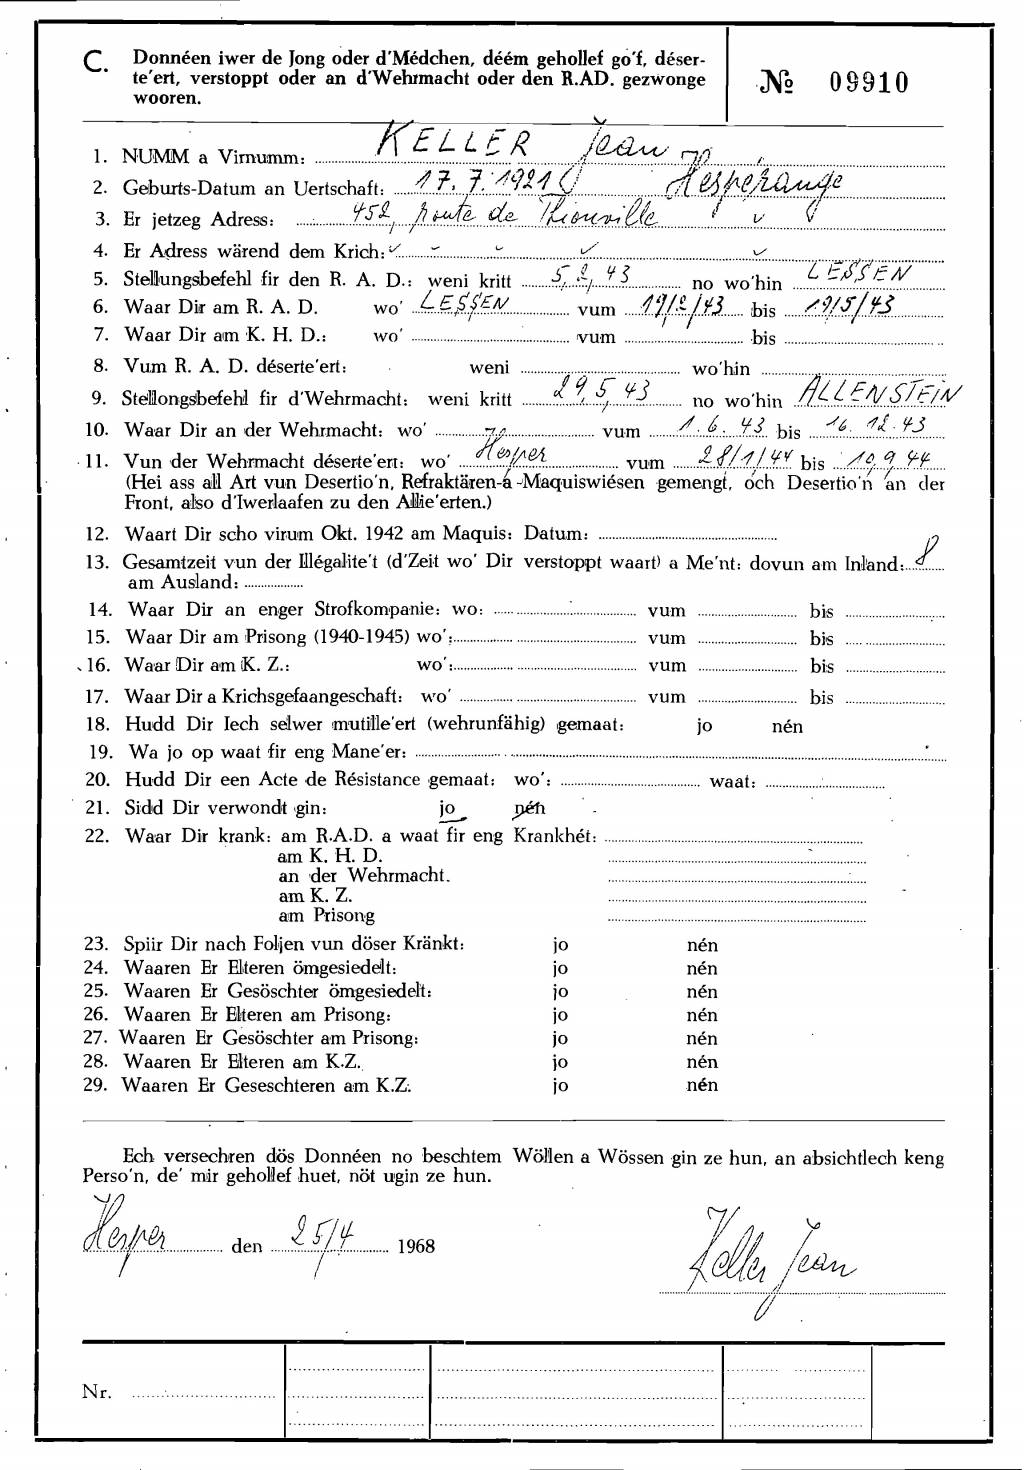 C. Donnéen iwer de Jong oder d'Médchen, déém gehollef go'f, déser-
te'ert, verstoppt oder an d'Wehrmacht oder den R.AD. gezwonge
wooren.
№ 09910
1. NUMM a Virnumm: KELLER Jean
2. Geburts-Datum an Uertschaft: 17.7.1921 Hesperange
3. Er jetzeg Adress: 452, route de Thionville
4. Er Adress wärend dem Krich:
5. Stellungsbefehl fir den R. A. D.: weni kritt 5.2.43 no wo'hin LESSEN
6. Waar Dir am R. A. D. wo' LESSEN vum 19/2/43 bis 19/5/43
7. Waar Dir am K. H. D.: wo' vum bis
8. Vum R. A. D. déserte'ert: weni wo'hin
9. Stellongsbefehl fir d'Wehrmacht: weni kritt 29,5,43 no wo'hin ALLENSTEIN
10. Waar Dir an der Wehrmacht: wo' vum 1.6.43 bis 16.12.43
11. Vun der Wehrmacht déserte'ert: wo' Hesper vum 28/1/44 bis 10.9.44
(Hei ass all Art vun Desertio'n, Refraktären-á-Maquiswiésen gemengt, och Desertio'n an der
Front, also d'Iwerlaafen zu den Allie'erten.)
12. Waart Dir scho virum Okt. 1942 am Maquis: Datum:
13. Gesamtzeit vun der Illégalite't (d'Zeit wo' Dir verstoppt waart) a Me'nt: dovun am Inland: 8
am Ausland:
14. Waar Dir an enger Strofkompanie: wo: vum bis
15. Waar Dir am Prisong (1940-1945) wo': vum bis
16. Waar Dir am K. Z.: wo': vum bis
17. Waar Dir a Krichsgefaangeschaft: wo' vum bis
18. Hudd Dir Iech selwer mutille'ert (wehrunfähig) gemaat: jo nén
19. Wa jo op waat fir eng Mane'er:
20. Hudd Dir een Acte de Résistance gemaat: wo': waat:
21. Sidd Dir verwondt gin: jo nén
22. Waar Dir krank: am R.A.D. a waat fir eng Krankhét:
am K. H. D.
an der Wehrmacht.
am K. Z.
am Prisong
23. Spiir Dir nach Foljen vun döser Kränkt: jo nén
24. Waaren Er Elteren ömgesiedelt: jo nén
25. Waaren Er Gesöschter ömgesiedelt: jo nén
26. Waaren Er Elteren am Prisong: jo nén
27. Waaren Er Gesöschter am Prisong: jo nén
28. Waaren Er Elteren am K.Z. jo nén
29. Waaren Er Geseschteren am K.Z. jo nén
Ech versechren dös Donnéen no beschtem Wöllen a Wössen gin ze hun, an absichtlech keng
Perso'n, de' mir gehollef huet, nöt ugin ze hun.
Hesper den 25/4 1968
Keller Jean
Nr.